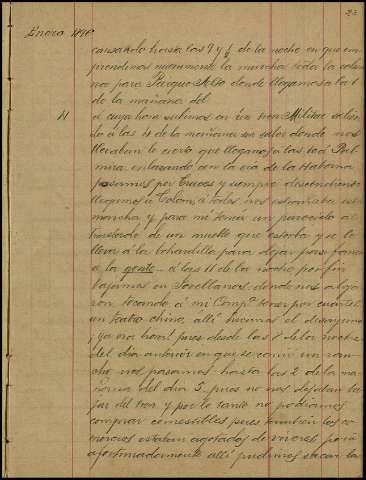 23
Enero 1896
cansando hasta las 7 y ½ de la noche en que em
prendimos nuevamente la marcha toda la colum
na para Parque Alto donde llegamos a la 1
de la mañana del
11 a cuya hora subimos en un tren Militar salien
do á las 4 de la mañana sin saber donde nos
llevaban lo cierto que llegamos a las Pal
mira enlazando en la via de la Habana
pasamos por Cruces y siempre
llegamos á Colon, á todos nos estrañaba esta
marcha y para mi tenia un parecido al
de un mueble que estorba y se le
lleva á la bohardilla para dejar paso franco
a la gente - á las 11 de la noche por fin
bajamos en Jovellanos, donde nos aloja
ron tocando á mi Compª tener por cuartel
un teatro chino, allí hicimos el desayuno
¡ya era hora! pues desde las 7 de la noche
del dia anterior en que se comió un ran
cho nos pasamos hasta las 2 de la ma
ñana del dia 5, pues no nos dejaban ba
jar del tren y por lo tanto no podiamos
comprar comestibles pues tambien los co
mercios estaban agotados de viveres, pero
afortunadamente allí pudimos sacar la